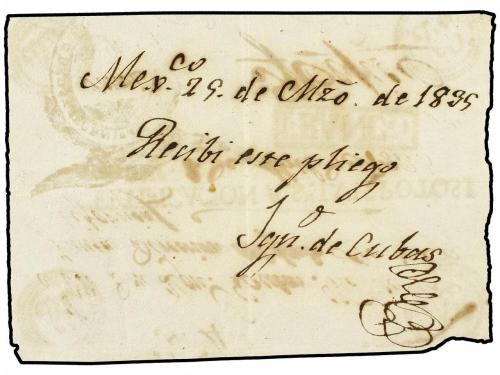 Mex.co 25. de Mzo. de 1835
Recibi este pliego
Ygn.o de Cubas